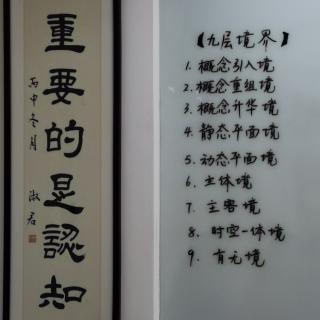 重要的是認知
丙申冬月
淑君
【九层境界】
1. 概念引入境
2. 概念重组境
3. 概念升华境
4. 静态平面境
5. 动态平面境
6. 主体境
7. 主客境
8. 时空一体境
9. 有无境